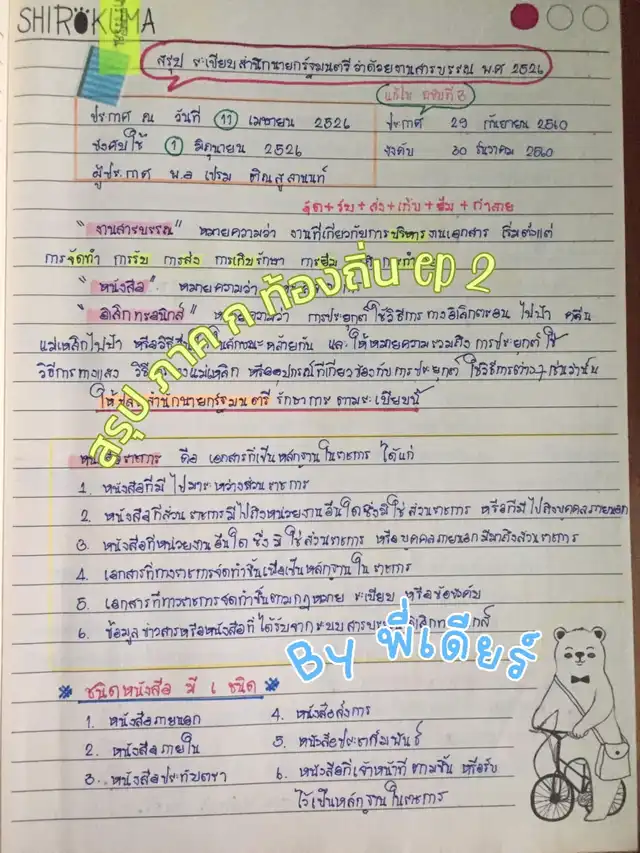 SHIROKUMA
สรุป ระเบียบสำนักนายกรัฐมนตรีว่าด้วยงานสารบรรณ พ.ศ 2526
แก้ไข ฉบับที่ 3
ประกาศ ณ วันที่ 11 เมษายน 2526
ประกาศ 29 กันยายน 2560
บังคับใช้ 1 มิถุนายน 2526
บังคับ 30 ธันวาคม 2560
ผู้ประกาศ พ.อ เปรม ติณสูลานนท์
จัด+รับ+ส่ง+เก็บ+ยืม+ทำลาย
"งานสารบรรณ" หมายความว่า งานที่เกี่ยวกับการบริหารงานเอกสาร เริ่มตั้งแต่
การจัดทำ การรับ การส่ง การเก็บรักษา การยืม
"หนังสือ" หมายความว่า
"อิเล็กทรอนิกส์" การประยุกต์ใช้วิธีการทางอิเล็กตรอน ไฟฟ้า คลื่น
แม่เหล็กไฟฟ้า หรือวิธีอื่นใดในลักษณะคล้ายกัน และให้หมายความรวมถึงการประยุกต์ใช้
วิธีการทางแสง วิธีการทางแม่เหล็ก หรืออุปกรณ์ที่เกี่ยวข้องกับการประยุกต์ใช้วิธีการต่างๆ เช่นว่านั้น
ให้ปลัดสำนักนายกรัฐมนตรี รักษาการตามระเบียบนี้
สรุป ภาค ก ท้องถิ่น ep 2
หนังสือราชการ คือ เอกสารที่เป็นหลักฐานในราชการ ได้แก่
1. หนังสือที่มีไปมาระหว่างส่วนราชการ
2. หนังสือที่ส่วนราชการมีไปถึงหน่วยงานอื่นใดซึ่งมิใช่ส่วนราชการ หรือที่มีไปถึงบุคคลภายนอก
3. หนังสือที่หน่วยงานอื่นใด ซึ่งมิใช่ส่วนราชการ หรือบุคคลภายนอกมีมาถึงส่วนราชการ
4. เอกสารที่ทางราชการจัดทำขึ้นเพื่อเป็นหลักฐานในราชการ
5. เอกสารที่ทางราชการจัดทำขึ้นตามกฎหมาย ระเบียบ หรือข้อบังคับ
6. ข้อมูลข่าวสารหรือหนังสือที่ได้รับจากระบบสารบรรณอิเล็กทรอนิกส์
By พี่เดียร์
* ชนิดหนังสือ มี 6 ชนิด *
1. หนังสือภายนอก
4. หนังสือสั่งการ
2. หนังสือภายใน
5. หนังสือประชาสัมพันธ์
3. หนังสือประทับตรา
6. หนังสือที่เจ้าหน้าที่ทำขึ้น หรือรับ
ไว้เป็นหลักฐานในราชการ